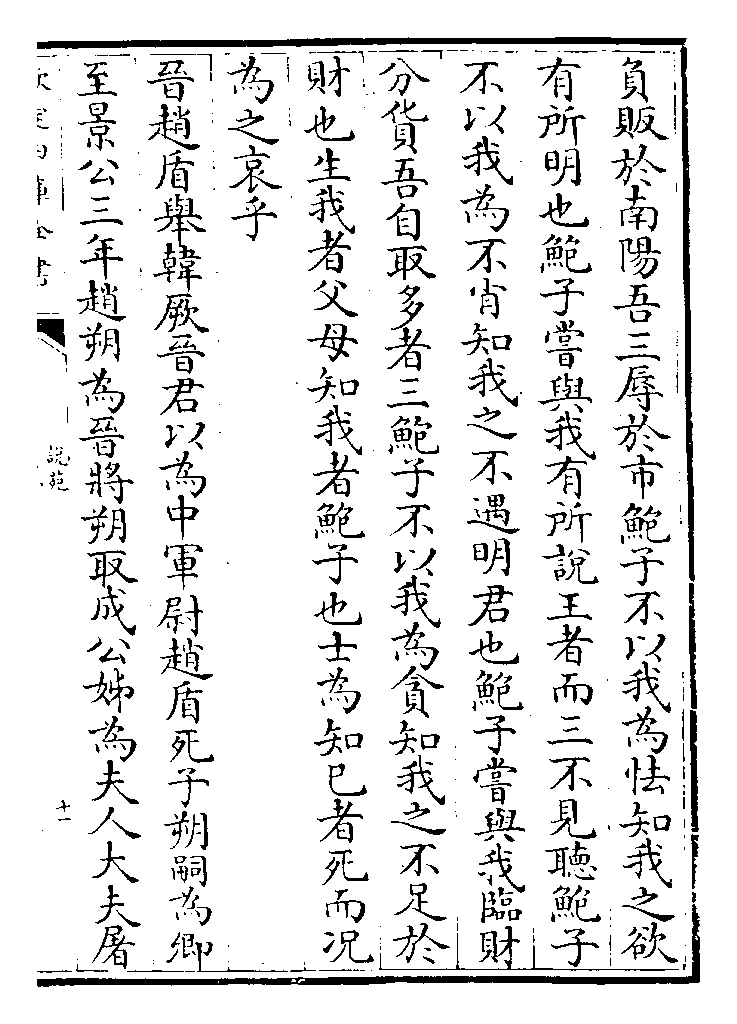 負販於南陽吾三辱於市鮑子不以我為怯知我之欲
有所明也鮑子嘗與我有所說王者而三不見聽鮑子
不以我為不肖知我之不遇明君也鮑子嘗與我臨財
分貨吾自取多者三鮑子不以我為貪知我之不足於
財也生我者父母知我者鮑子也士為知已者死而况
為之哀乎
晉趙盾舉韓厥晉君以為中軍尉趙盾死子朔嗣為卿
至景公三年趙朔為晉將朔取成公姊為夫人大夫屠
欽定四庫全書
說苑
十一